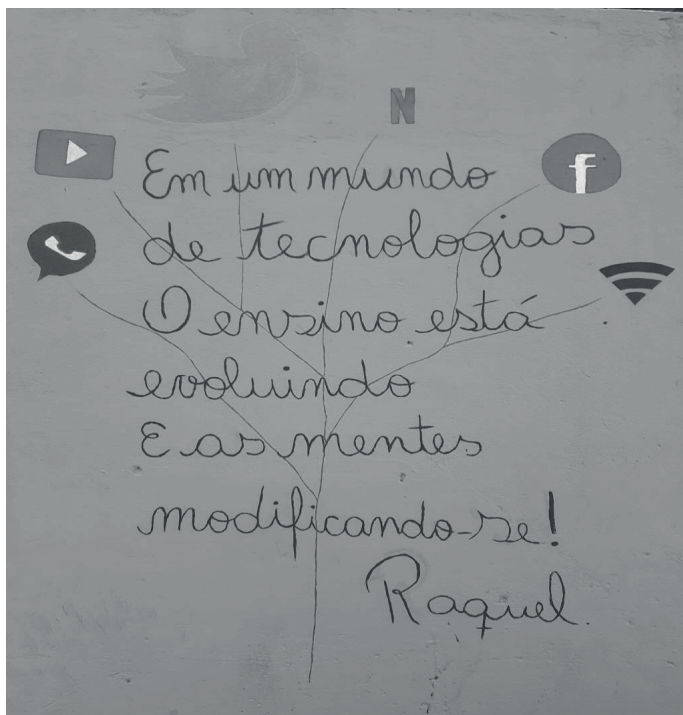 N
f
Em um mundo
de tecnologias
O ensino está
evoluindo
E as mentes
modificando-se!
Raquel